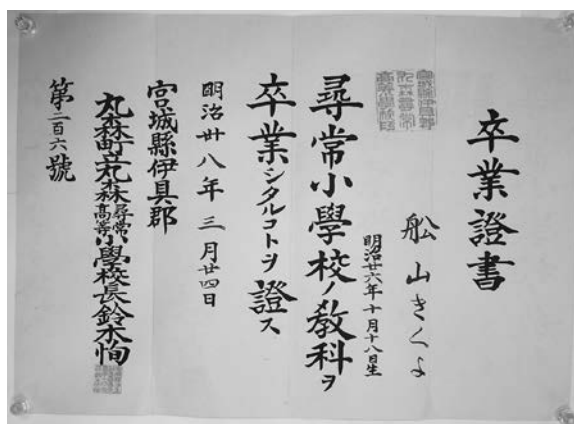 卒業證書
舩山きくよ
明治廿六年十月十八日生
尋常小學校ノ教科ヲ
卒業シタルコトヲ證ス
明治廿八年三月廿四日
宮城縣伊具郡
丸森町立丸森尋常高等小學校長鈴木恂
第二百六號